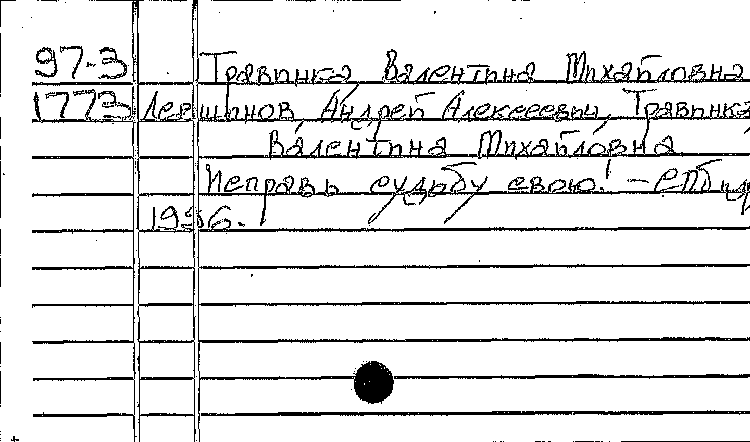 97-3 Травинка, Валентина Михайловна
1773 Левшинов, Андрей Алексеевич, Травинка
Валентина Михайловна
Исправь судьбу свою! – СПб
1996.